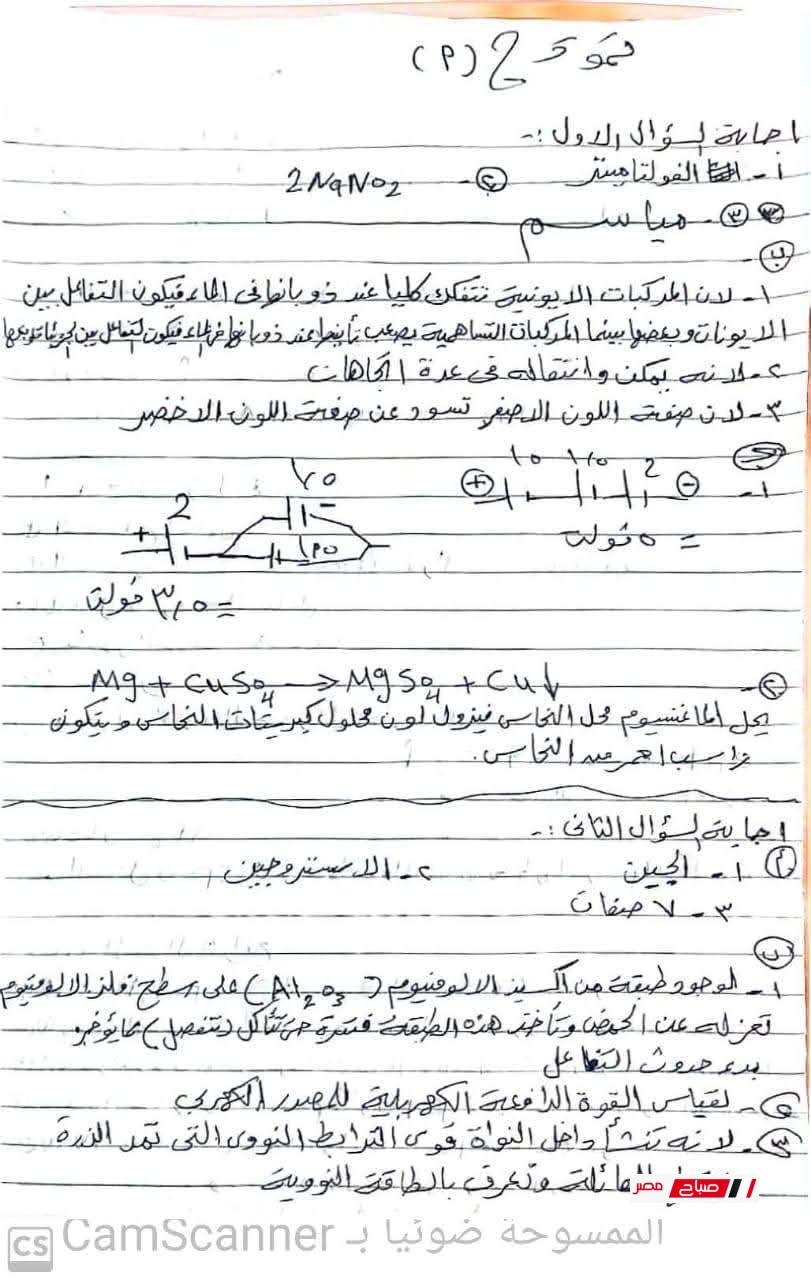 نموذج (٩)
اجابة السؤال الاول :-
١- الفولتاميتر ②- 2NaNO2
③- مياسم
ب -
١- لان المركبات الايونية تتفكك كليا عند ذوبانها فى الماء فيكون التفاعل بين
الايونات وبعضها بينما المركبات التساهمية يصعب تأينها عند ذوبانها فى الماء فيكون التفاعل بين جزيئاتها وبعضها
٢- لانه يمكن وانتقاله فى عدة اتجاهات
٣- لان صفة اللون الاصفر تسود عن صفة اللون الاخضر
١٥ ١٫٥ 2
١- ⊕ ⊖
= ٥ فولت
2 ١٫٥
+ -
١٫٥
= ٣٫٥ فولت
②- Mg + CuSO4 → MgSO4 + Cu↓
يحل الماغنسيوم محل النحاس فيزول لون محلول كبريتات النحاس ويتكون
راسب احمر من النحاس.
اجابة السؤال الثانى :-
أ ١- الجين ٢- الاستروجين
٣- ٧ صفات
ب
١- لوجود طبقة من اكسيد الالومنيوم (Al2O3) على سطح فلز الالومنيوم
تعزله عن الحمض وتأخذ هذه الطبقة فترة حتى تتآكل (تنفصل) مما يؤخر
بدء حدوث التفاعل
②- لقياس القوة الدافعة الكهربية للمصدر الكهربى
③- لانه تنشأ داخل النواة قوى الترابط النووى التى تمد الذرة
الهائلة وتعرف بالطاقة النووية
صباح مصر
الممسوحة ضوئيا بـ CamScanner
CS